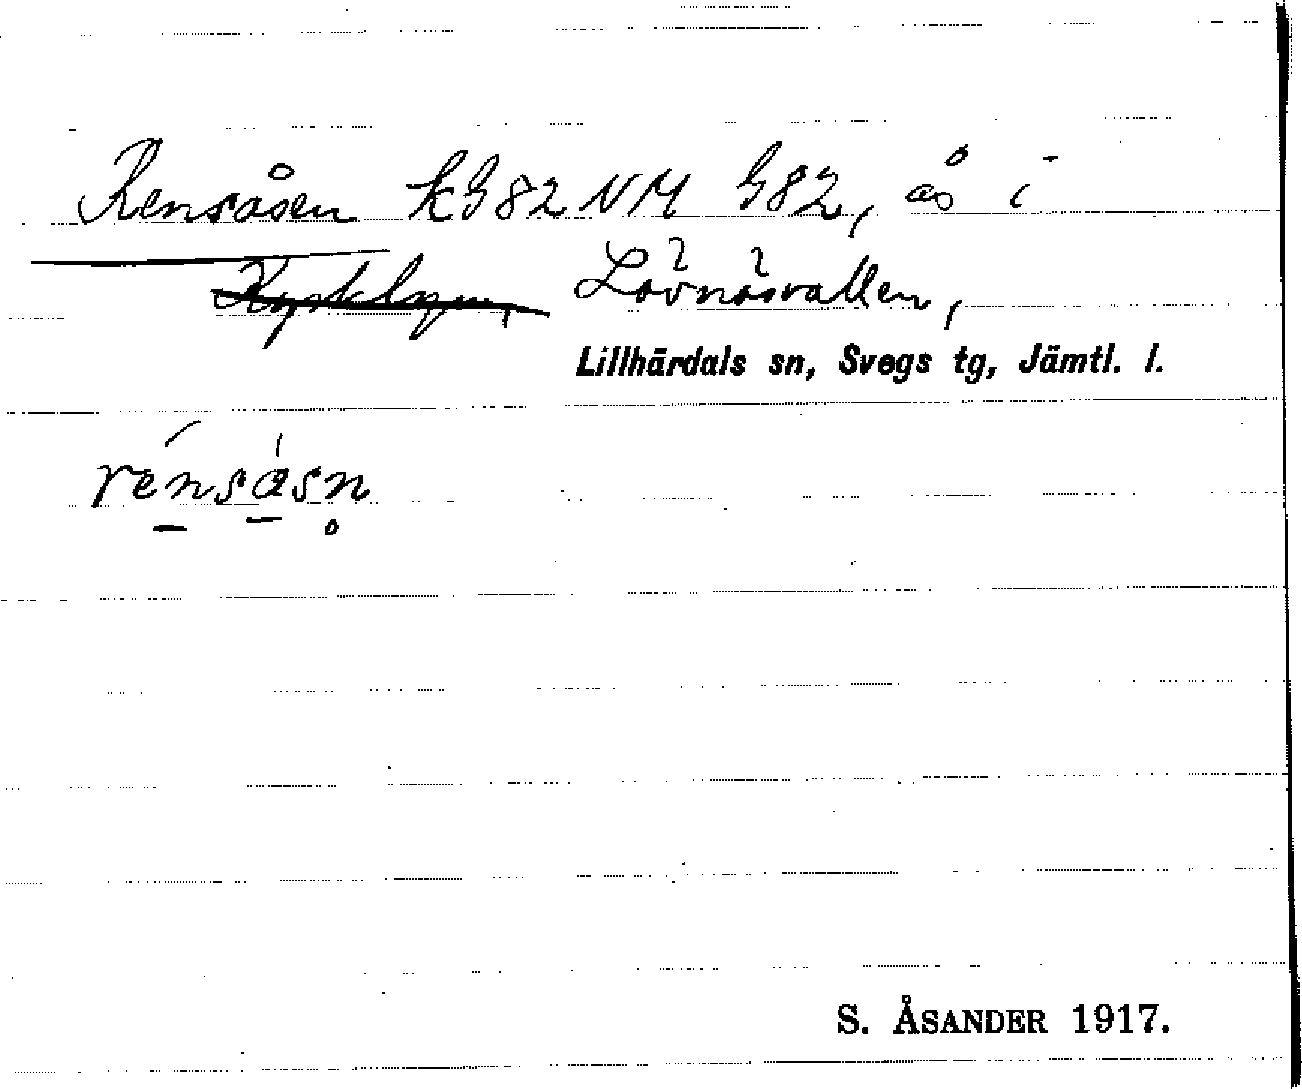 Rensåsen kG82NM G82, ås i
Kyrkbyn, Lövnäsvallen,
Lillhärdals sn, Svegs tg, Jämtl. l.
rénsåsn̥
S. ÅSANDER 1917.